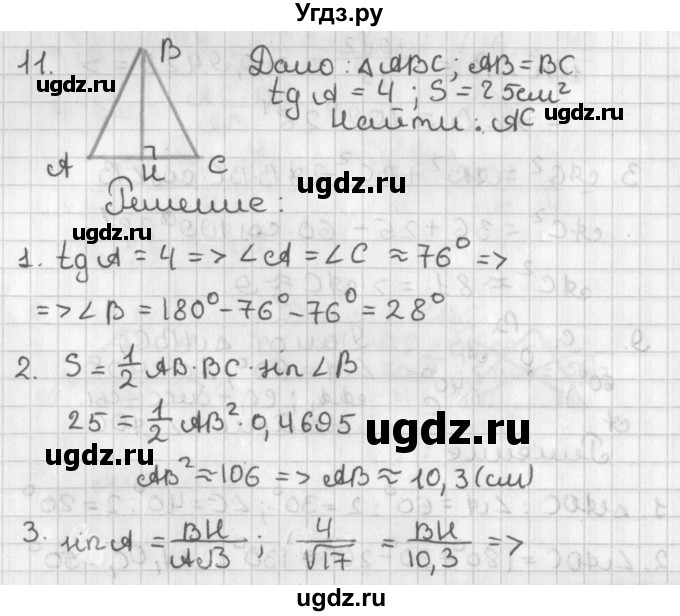 Угдз.ру
11.
B
A
H
C
Дано: △ABC; AB=BC
tg A = 4; S = 25см²
Найти: AC
Решение:
1. tg A = 4 => ∠A = ∠C ≈ 76° =>
=> ∠B = 180° - 76° - 76° = 28°
2. S = 1/2 AB · BC · sin ∠B
25 = 1/2 AB² · 0,4695
AB² ≈ 106 => AB ≈ 10,3 (см)
3. sin A = BH/AB; 4/√17 = BH/10,3 =>
ugdz.ru
ugdz.ru
ugdz.ru
ugdz.ru
ugdz.ru
ugdz.ru
ugdz.ru
ugdz.ru
ugdz.ru
ugdz.ru